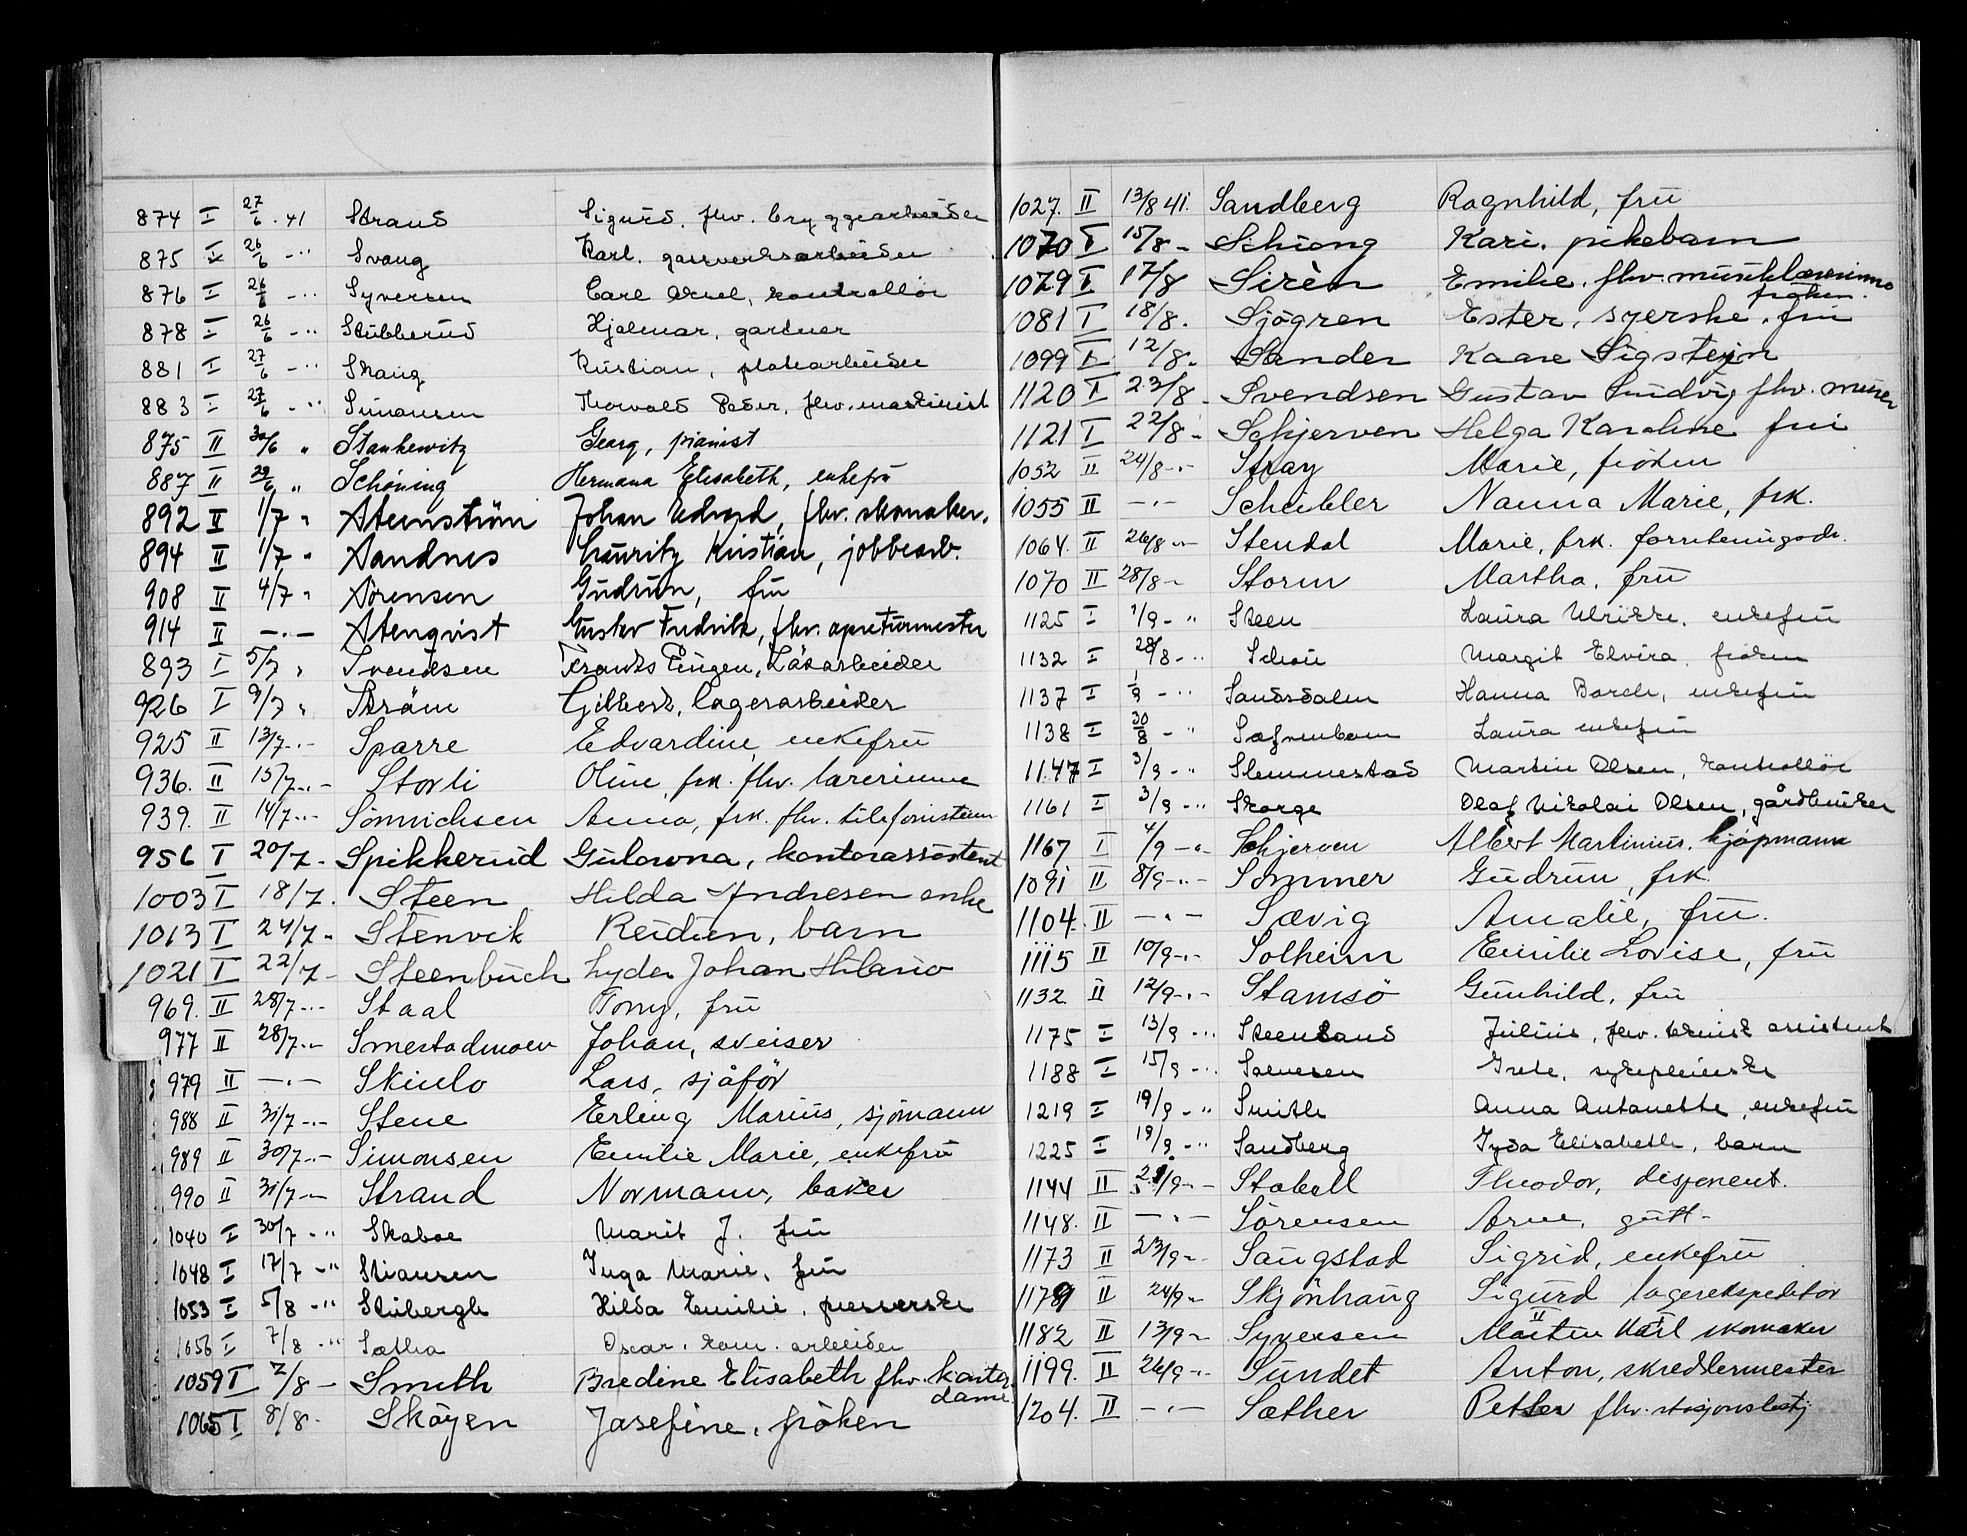 874 I 27/6 . 41 Strand Sigurd, fhv. bryggearbeider
875 I 26/6 - " Svang Karl, gassverksarbeider
876 I 26/6 - " Syversen Carl Aksel, kontrollör
878 I 26/6 - " Stubberud Hjalmar, gartner
881 I 27/6 - " Skaug Kristian, platearbeider
883 I 27/6 - " Simonsen Thorvald Peder, fhv. maskinist
875 II 30/6 " Stankewitz Georg, pianist
887 II 29/6 " Schöning Hermana Elisabeth, enkefru
892 II 1/7 " Steenström Johan Edvard, fhv. skomaker.
894 II 1/7 " Sandnes Lauritz Kristian, jobbearb.
908 II 4/7 " Sörensen Gudrun, fru
914 II -.- Stenqvist Gustav Fredrik, fhv. apreturmester
893 I 5/7 " Svendsen Frants Eugen, Låsarbeider
926 I 9/7 " Ström Gilbert, lagerarbeider
925 II 13/7 -.- Sparre Edvardine, enkefru
936. II 15/7 -.- Storli Oline, frk. fhv. lærerinne
939. II 14/7 -.- Sönnichsen Anna, frk. fhv. telefonistinne
956 I 20/7 - Spikkerud Gulowna, kontorassistent
1003 I 18/7 . Steen Hilda Andresen enke
1013 I 24/7 - Stenvik Reidun, barn
1021 I 22/7 - Steenbuch Lyder Johan Hilario
969. II 28/7 -.- Staal Tony, fru
977 II 28/7 -.- Smestadmoen Johan, sveiser
979 II -.- Skinlo Lars, sjåför
988 II 31/7 -.- Stene Erling Marius, sjömann
989 II 30/7 -.- Simonsen Emilie Marie, enkefru
990 II 31/7 -.- Strand Normann, baker
1040 I 30/7 - " Skaboe Marit J. fru
1048 I 17/7 - " Stiansen Inga Marie, fru
1053 I 5/8 - " Stubergh Hilda Emilie, presserske
1056 I 7/8 - " Sætha Oscar, kom. arbeider
1059 I 7/8 - Smith Bredine Elisabeth fhv. kantor
dame
1065 I 8/8 - Sköyen Josefine, fröken
1027. II 13/8 41. Sandberg Ragnhild, fru
1070 I 15/8 - Schiong Kari, pikebarn
1079 I 17/8 Sirèn Emilie, fhv. musiklærerinne
fröken.
1081 I 18/8 . Sjögren Ester, syerske, fru
1099 I 12/8 . Sander Kaare Sigstein
1120 I 23/8 . Svendsen Gustav Ludvig fhv. murer
1121 I 22/8 - Schjerven Helga Karoline fru
1052 II 24/8 -.- Stray Marie, fröken
1055 II -.- Scheibler Nanna Marie, frk.
1064. II 26/8 -.- Stendal Marie, frk. forretningsdr.
1070 II 28/8 - Storm Martha, fru
1125 I 1/9 - " Steen Laura Ulrikke, enkefru
1132 I 28/8 - " Schou Margit Elvira, fröken
1137 I 1/9 - " Sandsdalen Hanna Borch, enkefru
1138 I 30/8 - " Safvenbom Laura enkefru
1147 I 3/9 - " Slemmestad Martin Olsen, kontrollör
1161 I 3/9 - " Skarge Olaf Nikolai Olsen, gårdbruker
1167 I 4/9 -.- Schjerven Albert Martinius, kjöpmann
1091 II 8/9 -.- Sommer Gudrun, frk.
1104. II -.- Sævig Amalie, fru.
1115 II 10/9 -.- Solheim Emilie Lovise, fru
1132. II 12/9 -.- Stamsö Gunhild, fru
1175 I 13/9 - " Steensland Julius, fhv. teknisk assistent
1188 I 15/9 - " Salvesen Grete, sykepleierske
1219 I 19/9 - " Smith Anna Antonette, enkefru
1225 I 19/9 - " Sandberg Lyda Elisabeth, barn
1144 II 21/9 -.- Stabell Theodor, disponent.
1148. II -.- Sörensen Arne, gutt -
1173 II 23/9 -.- Saugstad Sigrid, enkefru
1179 II 24/9 - Skjönhaug Sigurd lagerekspeditör
1182 II 13/9 - Syversen Martin Karl skomaker
1199. II 26/9 -.- Sundet Anton, skreddermester
1204. II -.- Sæther Petter fhv. stasjonsbetj